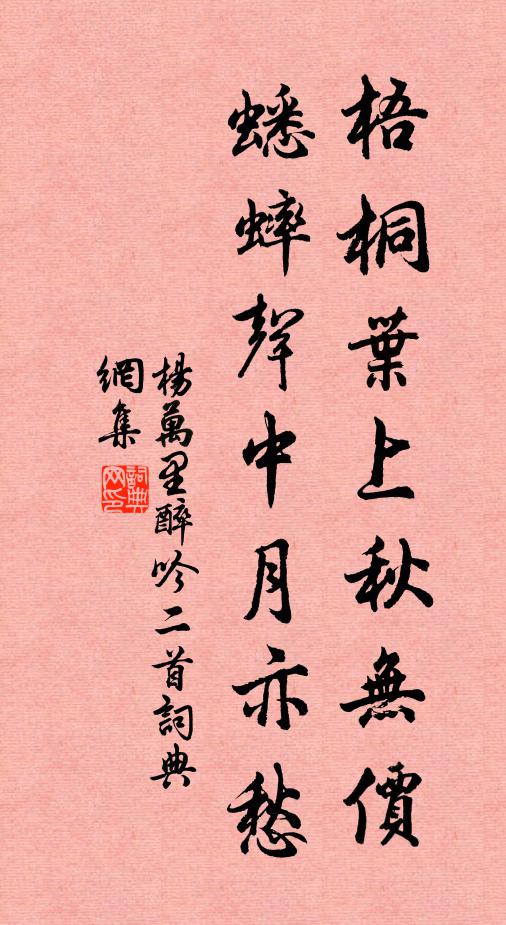 梧桐葉上秋無價
蟋蟀聲中月亦愁
楊萬里醉吟二首詞典
網集
詞典
网印